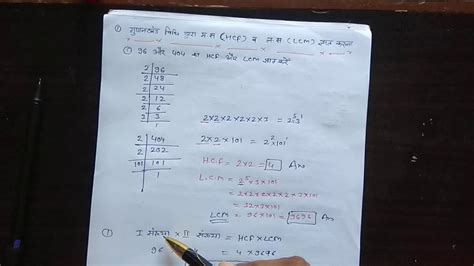 ① गुणनखंड विधि द्वारा म.स (HCF) व ल.स (LCM) ज्ञात करना
① 96 और 404 का HCF और LCM ज्ञात करें
2 | 96
2 | 48
2 | 24
2 | 12
2 | 6
3 | 3
1
2×2×2×2×2×3 = 2⁵3¹
2 | 404
2 | 202
101 | 101
1
2×2×101 = 2²×101¹
H.C.F = 2×2 = 4 Ans
L.C.M = 2⁵×3×101
= 2×2×2×2×2×3×101
= 32×3×101
LCM = 96×101 = 9696 Ans
① I संख्या × II संख्या = HCF×LCM
96
= 4 × 9696